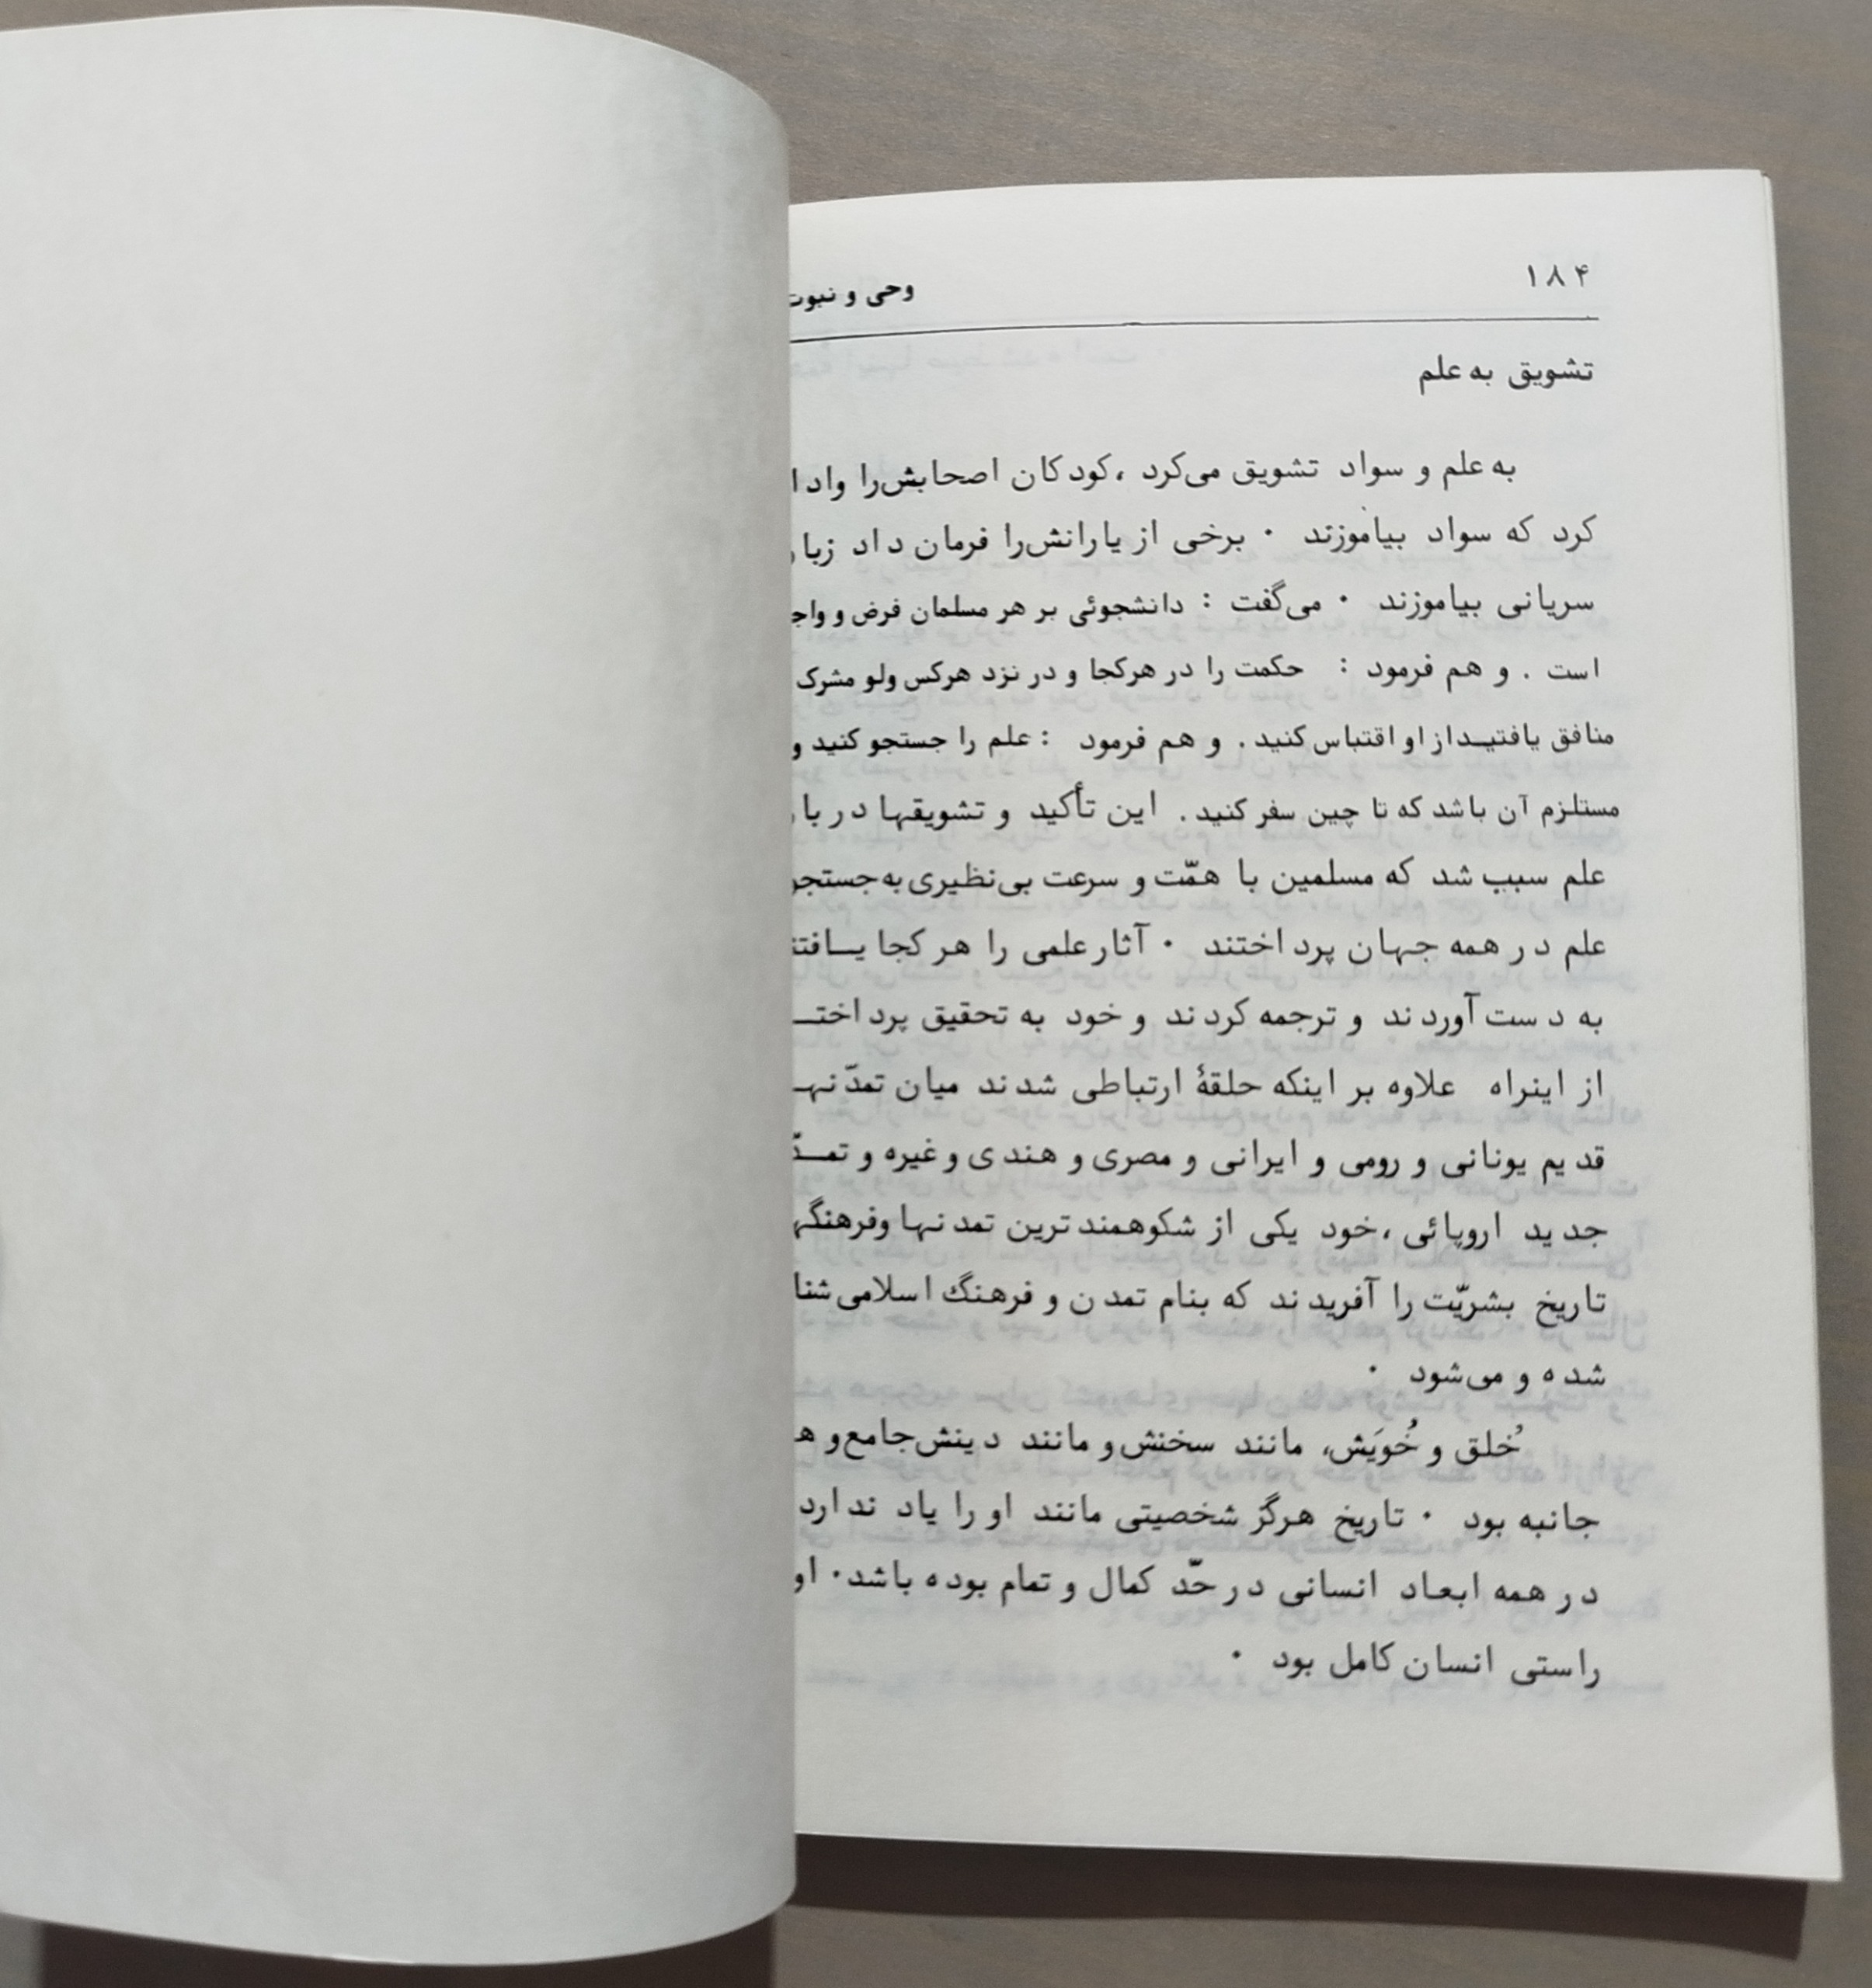 ۱۸۴
وحی و نبوت
تشویق به علم
به علم و سواد تشویق می‌کرد ، کودکان اصحابش‌را
کرد که سواد بیاموزند . برخی از یارانش‌را فرمان داد
سریانی بیاموزند . می‌گفت : دانشجوئی بر هر مسلمان فرض و
است . و هم فرمود : حکمت را در هرکجا و در نزد هرکس ولو مشرک
منافق یافتیـد از او اقتباس کنید . و هم فرمود : علم را جستجو کنید و
مستلزم آن باشد که تا چین سفر کنید . این تأکید و تشویقها
علم سبب شد که مسلمین با همّت و سرعت بی‌نظیری به
علم در همه جهان پرداختند . آثار علمی را هر کجا
به دست آوردند و ترجمه کردند و خود به تحقیق
از اینراه علاوه بر اینکه حلقهٔ ارتباطی شدند میان
قدیم یونانی و رومی و ایرانی و مصری و هندی و غیره و
جدید اروپائی ، خود یکی از شکوهمندترین تمدنها
تاریخ بشریّت را آفریدند که بنام تمدن و فرهنگ اسلامی
شده و می‌شود .
خُلق و خُویَش، مانند سخنش و مانند دینش جامع و
جانبه بود . تاریخ هرگز شخصیتی مانند او را یاد ندارد
در همه ابعاد انسانی در حّد کمال و تمام بوده باشد . او
راستی انسان کامل بود .